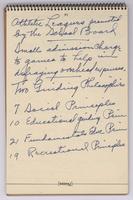 "Athletic Leagues" granted
by the School Board
Small admission charge
to games to help in
defraying overhead expenses.
Two Guiding Philosophies
7 Social Principles
10 Educational guiding Prin
21 Fundamentals Edu. Prin
19 Recreational Principles